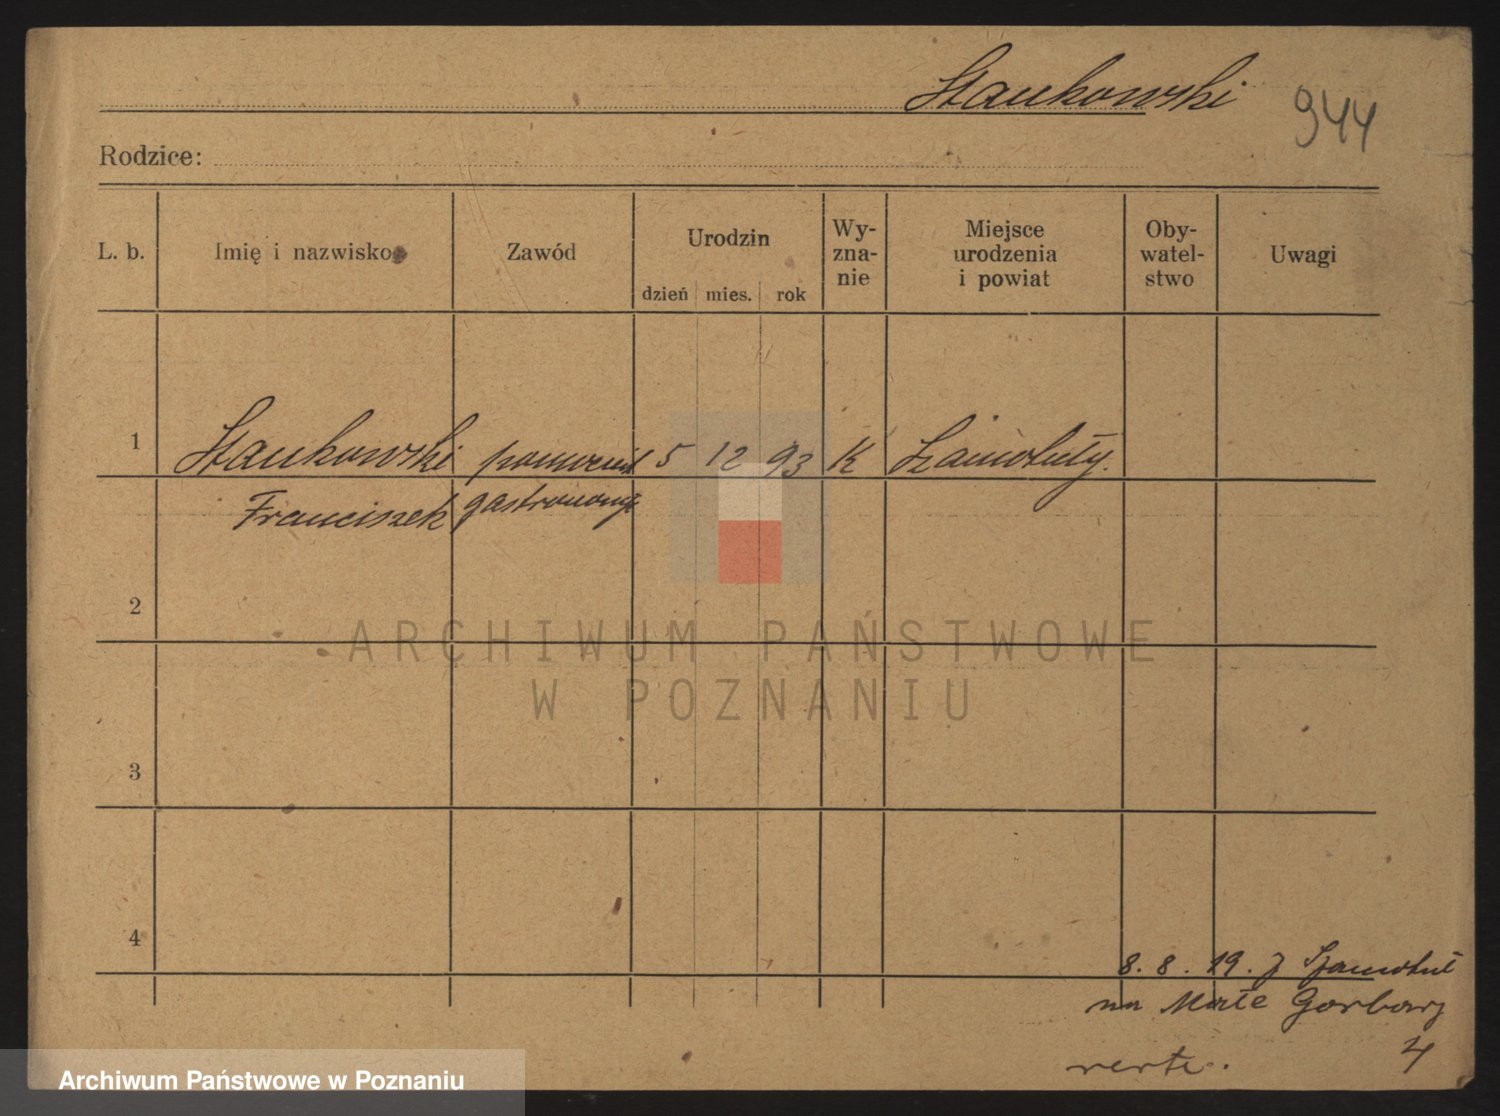 Stankowski
944
Rodzice:
L. b.
Imię i nazwisko
Zawód
Urodzin
dzień mies. rok
Wy-
zna-
nie
Miejsce
urodzenia
i powiat
Oby-
watel-
stwo
Uwagi
1 Stankowski pomocnik 5 12 93 K Szamotuły.
Franciszek gastronom.
2
ARCHIWUM PAŃSTWOWE
W POZNANIU
3
4
8. 8. 19. z Szamotuł
na Małe Garbary
4
verte.
Archiwum Państwowe w Poznaniu